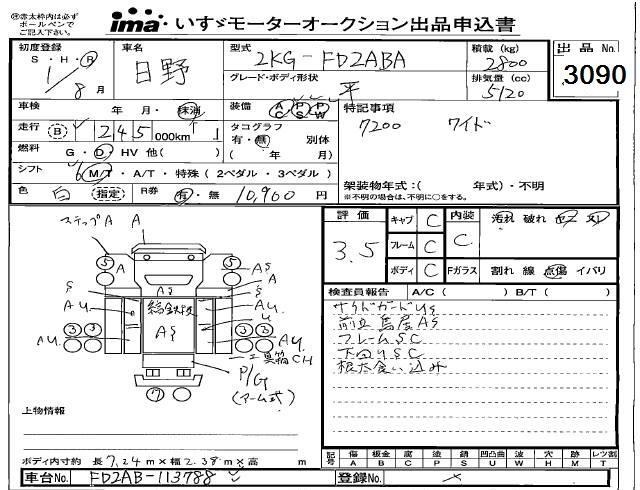 ※赤太枠内は必ず
ボールペンで
ご記入下さい。
ima・いすゞモーターオークション出品申込書
初度登録
S・H・R
1/8月
車名
日野
型式
2KG-FD2ABA
積載 (kg)
2800
出品 No.
3090
グレード・ボディ形状
平
排気量 (cc)
5120
車検
年 月・抹消
装備
AC PS PW
特記事項
7200 ワイド
走行
B
245,000km
タコグラフ
有・無 別体
( 年 月)
燃料
G・D・HV 他( )
シフト
6 M/T・A/T・特殊(2ペダル・3ペダル)
架装物年式:( 年式)・不明
※不明の場合は、不明に○をする。
色
白 指定
R券
有・無 10,960 円
評価
3.5
キャブ C
フレーム C
ボディ C
内装
C
汚れ 破れ
Fガラス
割れ 線 点傷 イバリ
ステップA A
検査員報告
A/C ( ) B/T ( )
サイドガードUS
前立 鳥居AS
フレームSC
下回りSC
根太食い込み
5 A
5 AS
S AS S
AU
総鉄板
AS
AU
U
3 3
AU
3 3
AU
工具箱CH
P/G
(アーム式)
7
上物情報
ボディ内寸約 長 7.24 m×幅 2.38 m×高 m
記号
傷 凹 板金 腐 塗 錆 凹凸曲 波 穴 跡 レツ割
A B C P S U W H M T
車台No.
FD2AB-113788
登録No.